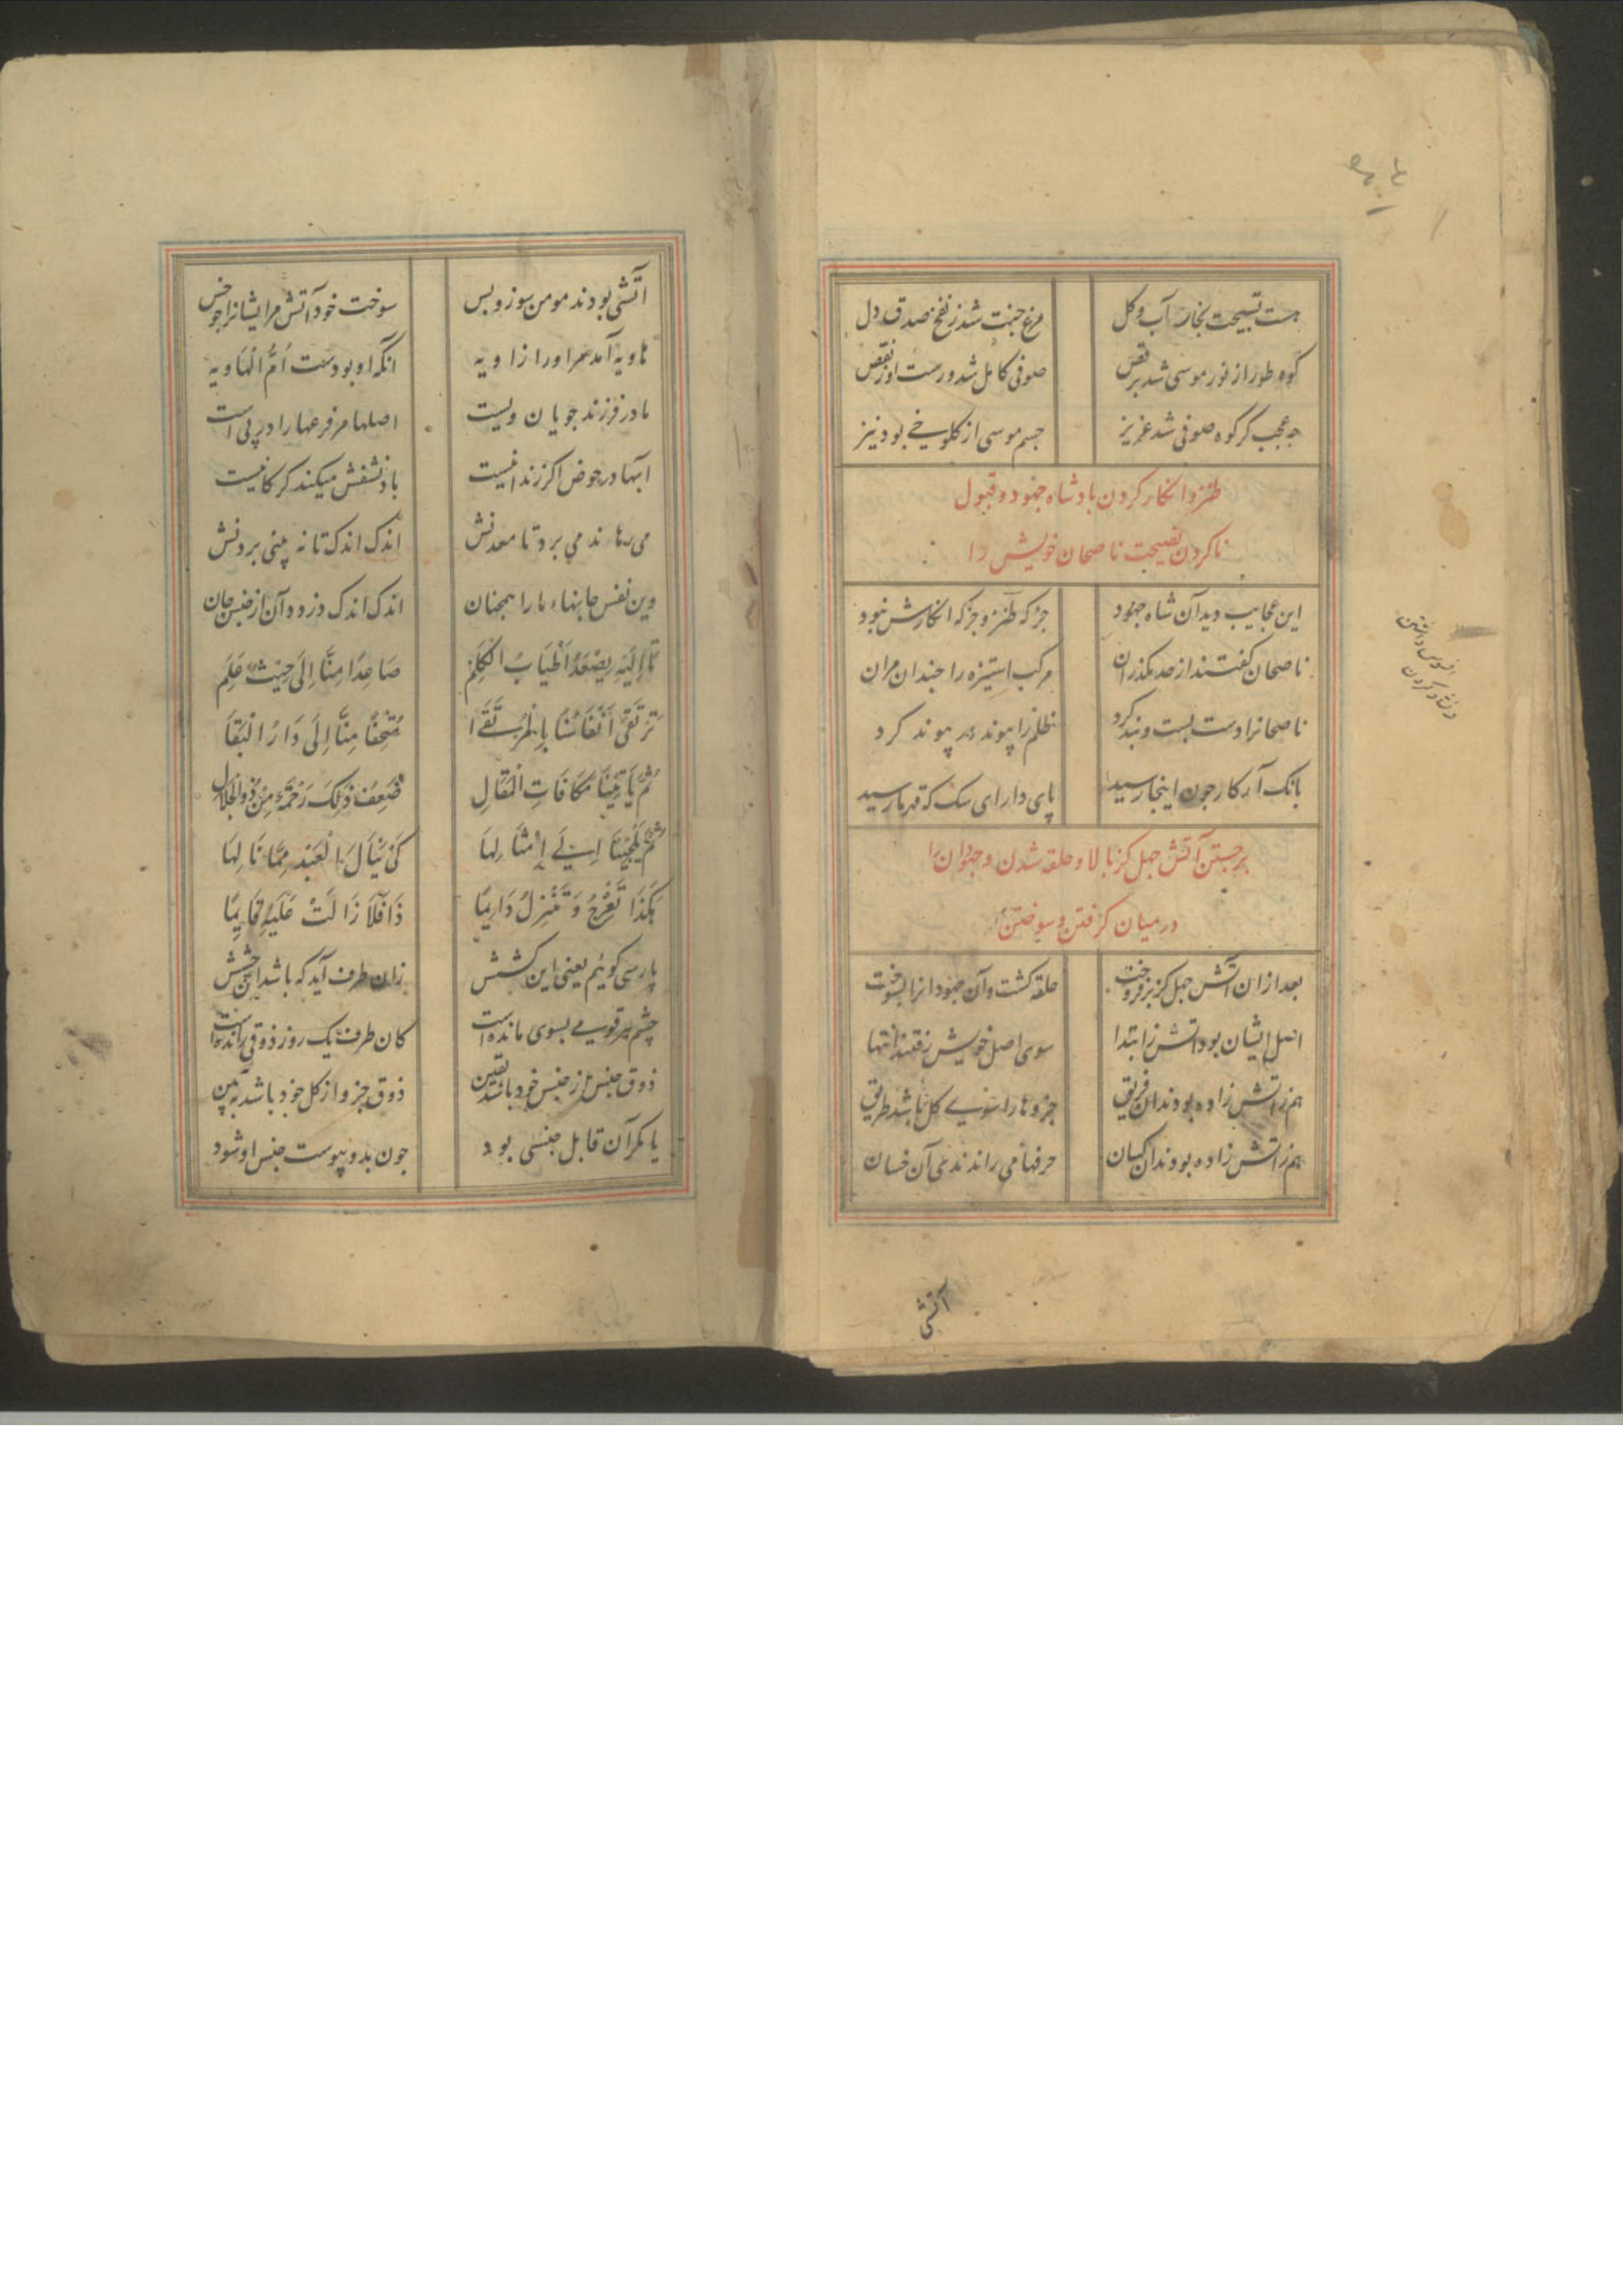 هست تسبیحت بخار آب و کل مرغ جنت شد ز نفخ صدق دل
کوه طور از نور موسی شد برقص صوفی کامل شد و رست او ز نقص
چه عجب کر کوه صوفی شد عزیز جسم موسی از کلوخی بود نیز
طنز و انکار کردن بادشاه جهود و قبول
ناکردن نصیحت ناصحان خویش را
این عجایب دید آن شاه جهود جز که طنز و جز که انکارش نبود
ناصحان کفتند از حد مکذران مرکب استیزه را چندان مران
ناصحانرا دست بست و بند کرد ظلم را پیوند در پیوند کرد
بانک آمد کار چون اینجا رسید پای دار ای سک که قهر ما رسید
برجستن آتش چهل کز بالا و حلقه شدن و جهودان را
در میان کرفتن و سوختن
بعد ازان آتش چهل کز بر فروخت حلقه کشت و آن جهودانرا بسوخت
اصل ایشان بود آتش ز ابتدا سوی اصل خویش رفتند انتها
هم ز آتش زاده بودند آن فریق جزوها را سوی کل باشد طریق
هم ز آتش زاده بودند آن کسان حرفها می راندند آن خسان
افسوس داشتن
آتشی
آتشی بودند مومن سوز و بس سوخت خود آتش مر ایشانرا چو خس
انکه او بودست اُمُّ الْهَاویه هاویه آمد مر اورا زاویه
مادر فرزند جویان ویست اصلها مر فرعها را در پی است
آبها در حوض اکر زندانیست باد نشفش میکند کارکانیست
می رهاند می برد تا معدنش اندک اندک تا نه بینی بردنش
وین نفس جانهاء ما را همچنان اندک اندک دزدد آن از حبس جان
تَا إِلَیْهِ یَصْعَدُ أَطْیَابُ الْکَلِمْ صَاعِدًا مِنَّا إِلَی حَیْثُ عَلِمْ
تَرْتَقِی أَنْفَاسُنَا بِالْمُرْتَقَا مُتْحِفًا مِنَّا إِلَی دَارُ الْبَقَا
ثُمَّ یَأْتِینَا مَکَافَاتِ الْمَقَالِ ضِعْفَ ذَلِکَ رَحْمَةً مِنْ ذُو الْجَلَالِ
ثُمَّ یُلْجِینَا إِلَی أَمْثَالِهَا کَیْ یَنَالَ الْعَبْدُ مِمَّا نَالَهَا
هَکَذَا تَعْرُجُ وَ تَنْزِلُ دَایِمًا ذَا فَلَا زَالَتْ عَلَیْهِ قَایِمًا
پارسی کوئیم یعنی این کشش زان طرف آید که باشد این چشش
چشم هر قومی بسوی مانده است کان طرف یک روز ذوقی رانده است
ذوق جنس از جنس خود باشد یقین ذوق جزو از کل خود باشد به بین
یا مکر آن قابل جنسی بود چون بدو پیوست جنس او شود